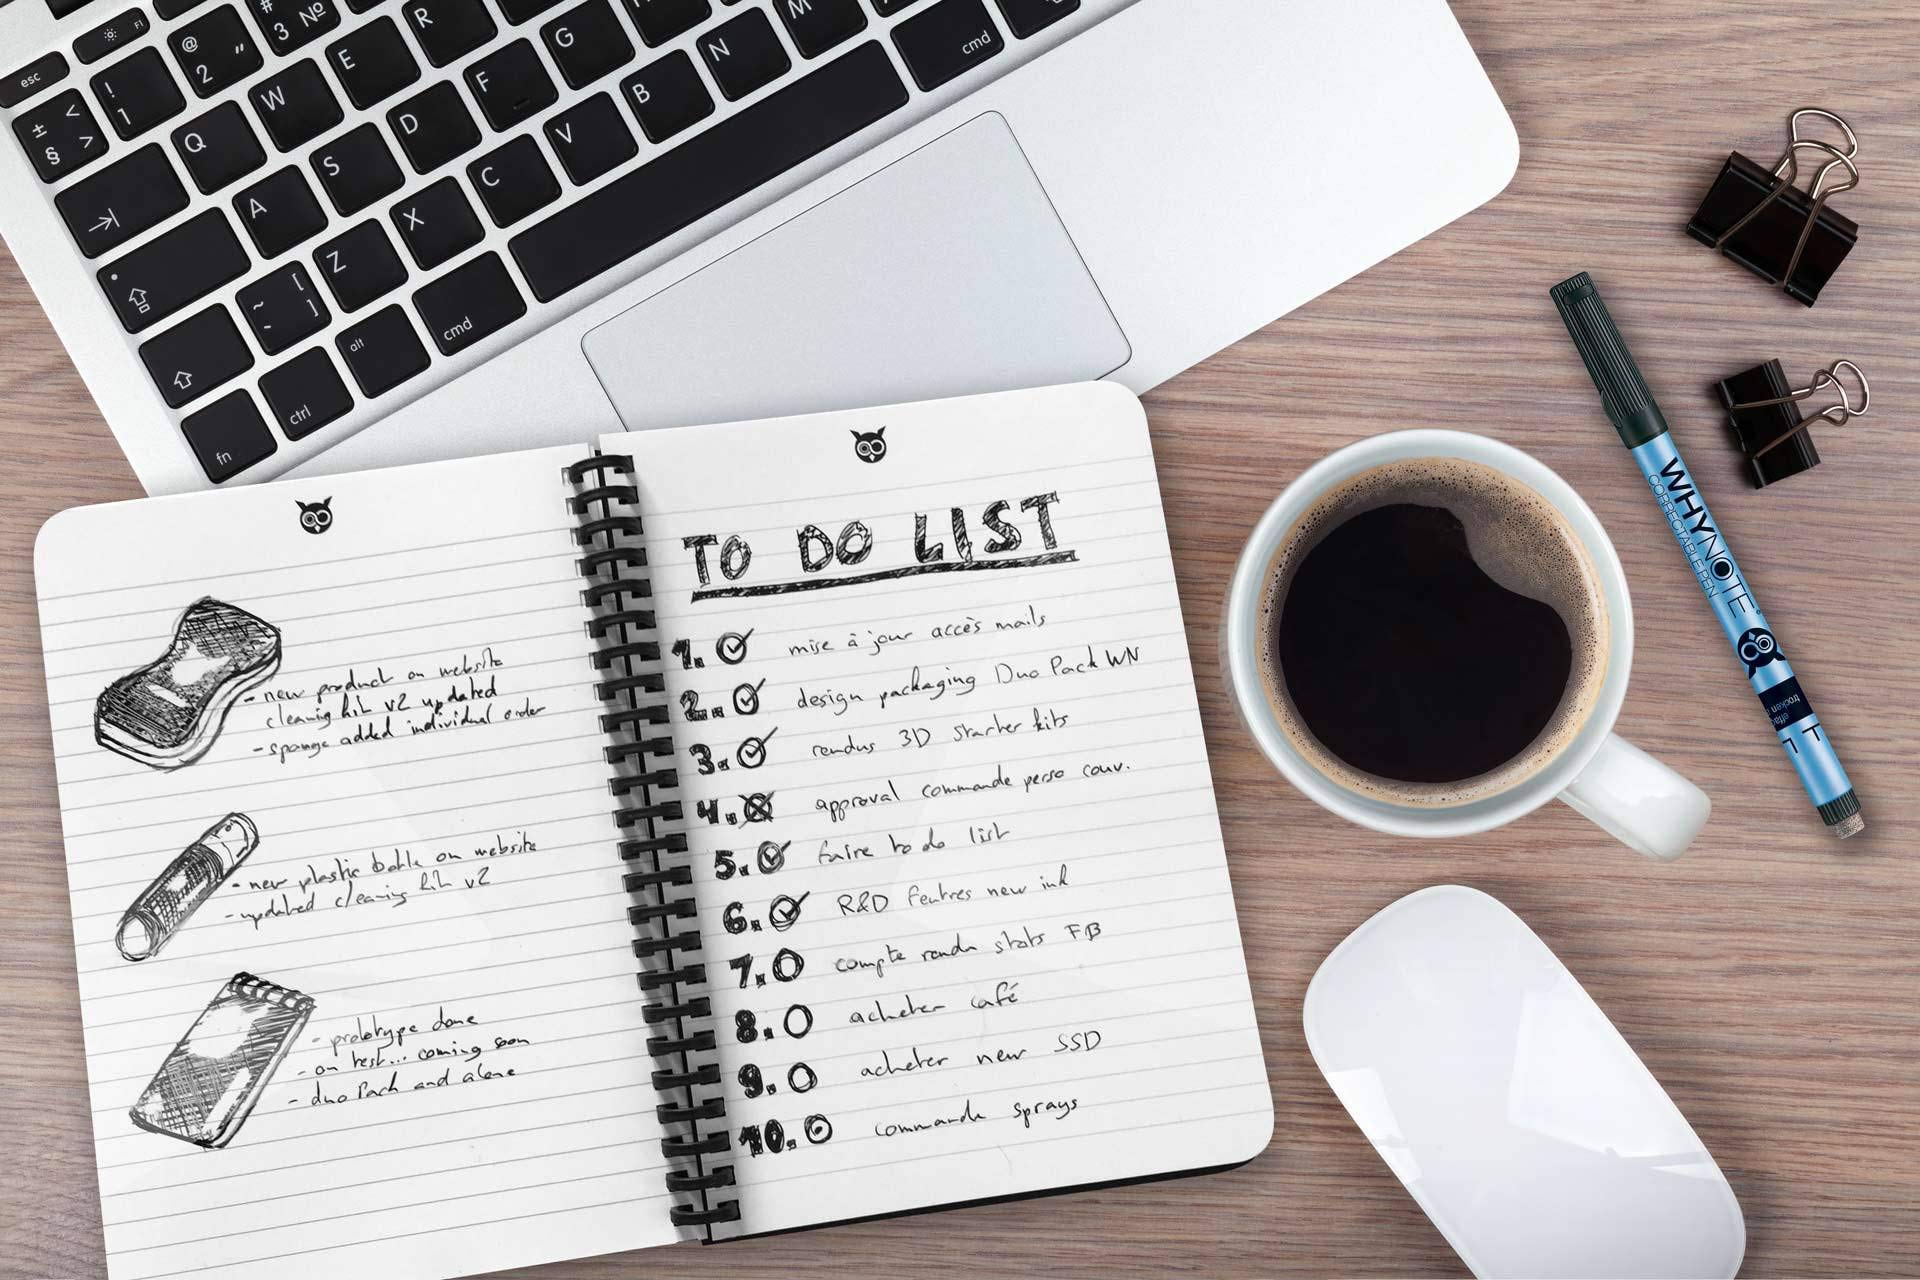 esc
F1
± < § >
! 1
@ 2 "
# 3 №
Q W E R
A S D F G
Z X C V B N M
~ [ ]
fn ctrl alt cmd cmd
- new product on website
cleaning kit v2 updated
- sponge added individual order
- new plastic bottle on website
- updated cleaning kit v2
- prototype done
- on test... coming soon
- duo Pack and alone
TO DO LIST
1. mise à jour accès mails
2. design packaging Duo Pack WN
3. rendus 3D starter kits
4. approval commande perso couv.
5. faire to do list
6. R&D feutres new ink
7. compte rendu stats FB
8. acheter café
9. acheter new SSD
10. commande sprays
WHYNOTE
CORRECTABLE PEN
trocken